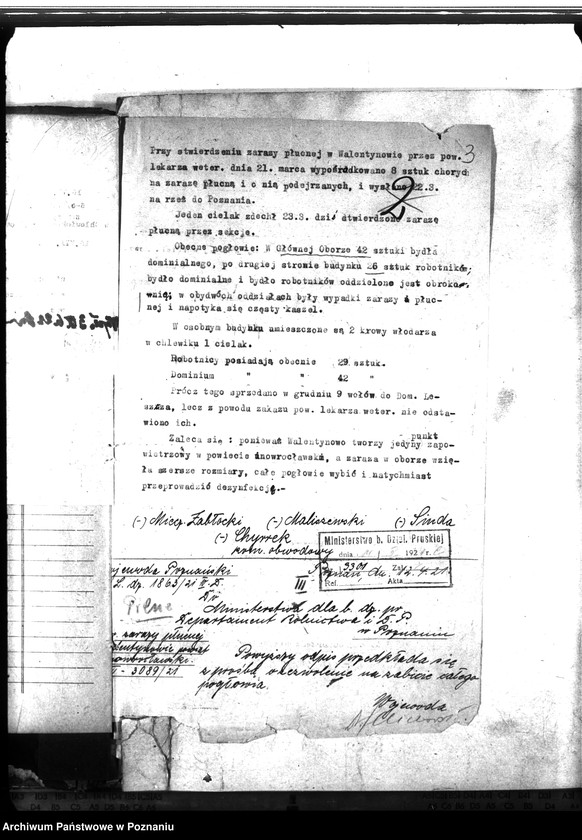 3
Przy stwierdzeniu zarazy płucnej w Walentynowie przez pow.
lekarza weter. dnia 21. marca wypośrodkowano 8 sztuk chorych
na zarazę płucną i o nią podejrzanych, i wysłano 22.3.
na rzeź do Poznania.
Jeden cielak zdechł 23.3. dziś stwierdzono zarazę
płucną przez sekcję.
Obecne pogłowie: W Głównej Oborze 42 sztuki bydła
dominialnego, po drugiej stronie budynku 26 sztuk robotników;
bydło dominialne i bydło robotników oddzielone jest obrokow
nią; w obydwóch oddziałach były wypadki zarazy płuc-
nej i napotyka się częsty kaszel.
W osobnym budynku umieszczone są 2 krowy włodarza
w chlewiku 1 cielak.
Robotnicy posiadają obecnie 29 sztuk.
Dominium " " 42 "
Prócz tego sprzedano w grudniu 9 wołów do Dom. Le-
szcza, lecz z powodu zakazu pow. lekarza weter. nie odsta-
wiono ich.
Zaleca się : ponieważ Walentynowo tworzy jedyny punkt zapo-
wietrzony w powiecie inowrocławskim, a zaraza w oborze wzię-
ła szersze rozmiary, całe pogłowie wybić i natychmiast
przeprowadzić dezynfekcję.-
(-) Miecz. Zabłocki (-) Maliszewski (-) Smda
(-) Chyrek
kom. obwodowy
Ministerstwo b. Dziel. Pruskiej
dnia 192
3301
Ref. Akta
Wojewoda Poznański
L. dz. 1863/21 III D.
Poznań, dn. 12.4.21.
III
Do
Pilne
Ministerstwa dla b. dz. pr.
Departament Rolnictwa i D. P.
w Poznaniu
zarazy płucnej
Walentynowie powiat
inowrocławski.
- 3089/21
Powyższy odpis przedkłada się
z prośbą o zezwolenie na zabicie całego
pogłowia.
Wojewoda
Archiwum Państwowe w Poznaniu